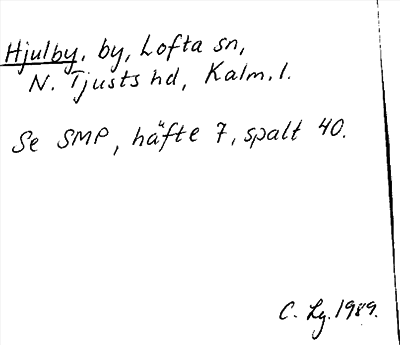 Hjulby, by, Lofta sn,
N. Tjusts hd, Kalm. l.
Se SMP, häfte 7, spalt 40.
C. Lg. 1989.